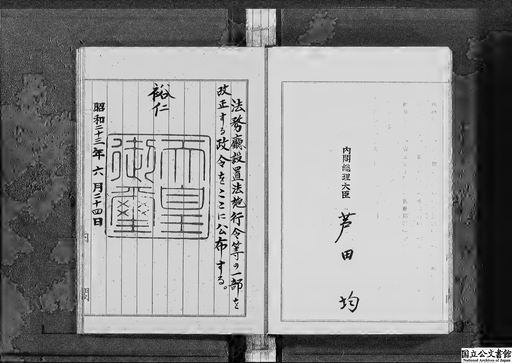 内閣總理大臣
芦田均
法務廳設置法施行令等の一部を
改正する政令をここに公布する。
裕仁
天皇御璽
昭和二十三年六月二十四日
内閣
国立公文書館
National Archives of Japan